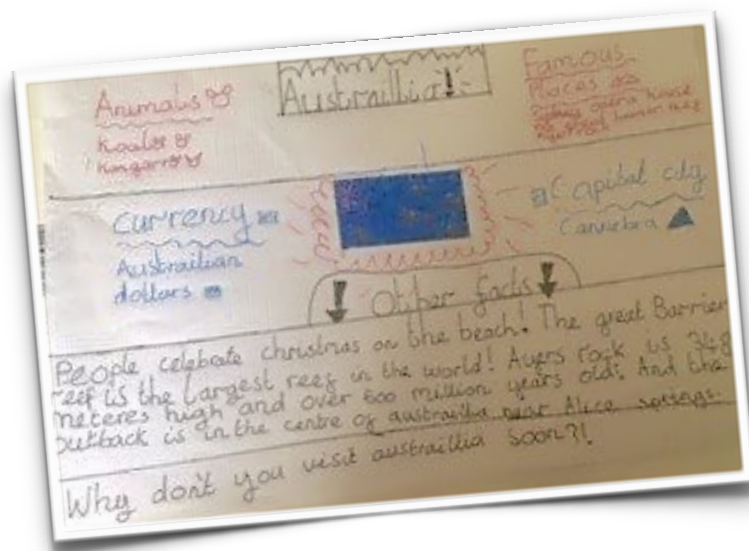 Animals
Koalas
Kangaroos
Austraillia!
Famous
Places
Sydney opera house
Currency
Austrailian
dollars
Capital city
Other facts
People celebrate christmas on the beach! The great Barrier
reef is the largest reef in the world! Ayers rock is 348
meteres high and over 600 million years old! And the
outback is in the centre of austraillia near Alice springs.
Why don't you visit austraillia soon?!